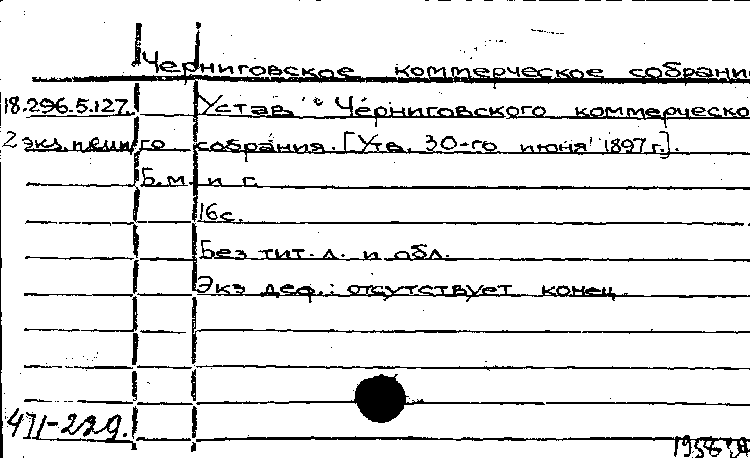 Черниговское коммерческое собрани
18.296.5.127. Устав Черниговского коммерческо
2 экз. го собрания. [Утв. 30-го июня 1897 г.].
Б.м. и г.
16с.
Без тит. л. и обл.
Экз деф.: отсутствует конец
471-229.